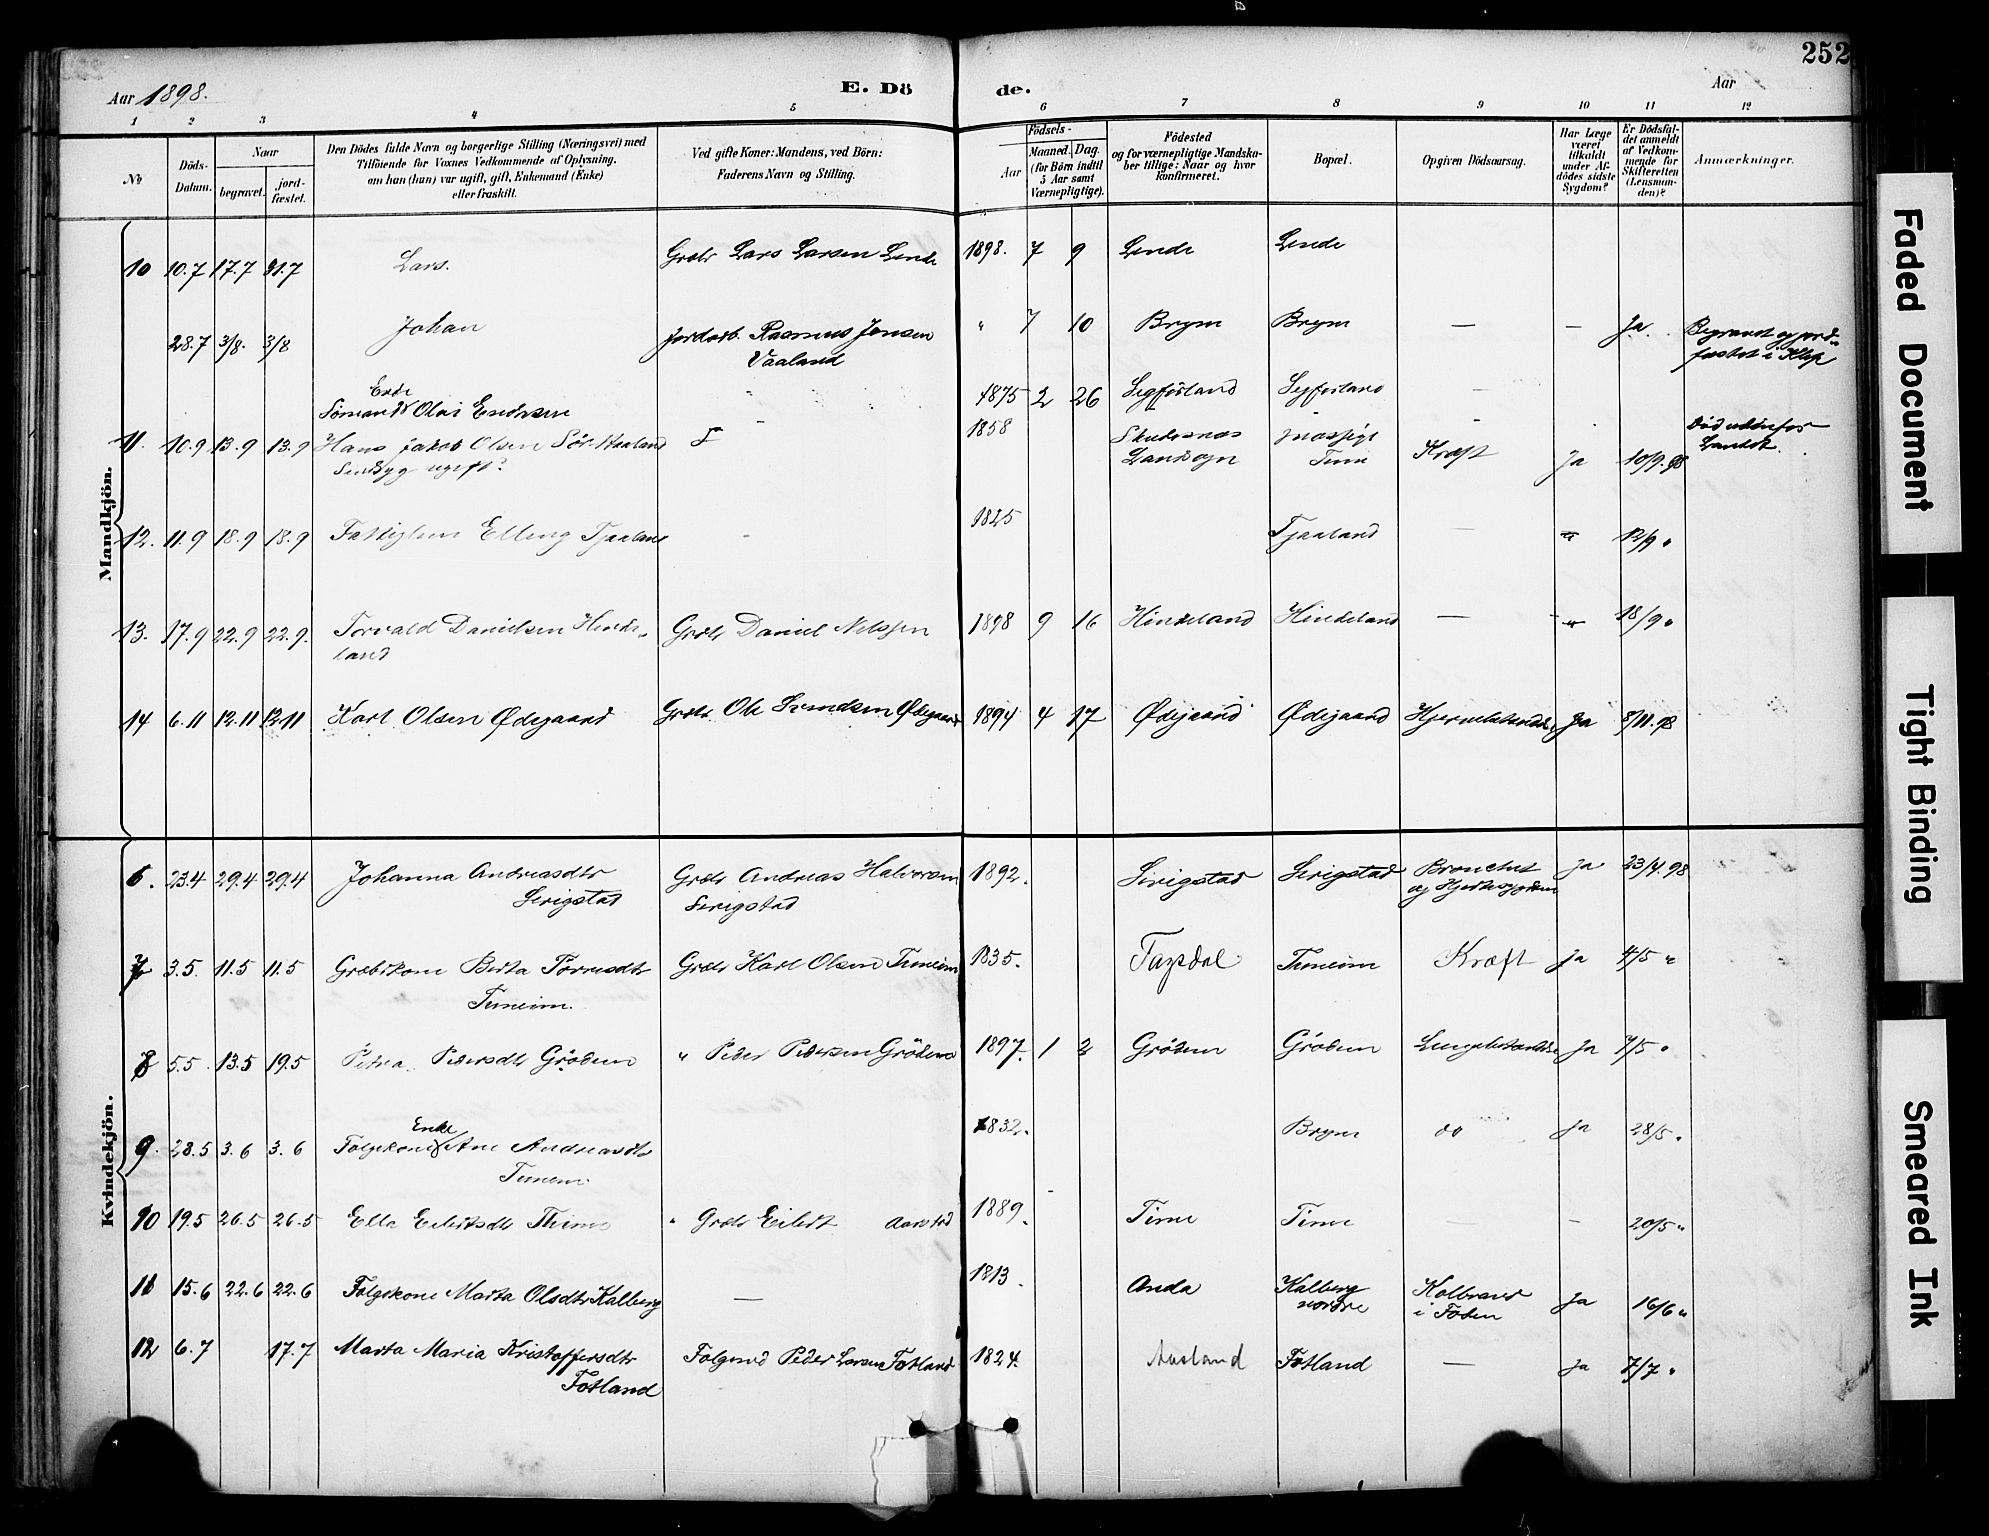 252
Aar 1898.
E. Dö
de.
Aar
1 2 3 4 5 6 7 8 9 10 11 12
No
Döds-
Datum.
Naar
begravet.
jord-
fæstet.
Den Dödes fulde Navn og borgerlige Stilling (Næringsvei) med
Tilföiende for Voxnes Vedkommende af Oplysning,
om han (hun) var ugift, gift, Enkemand (Enke)
eller fraskilt.
Ved gifte Koner: Mandens, ved Börn:
Faderens Navn og Stilling.
Födsels-
Aar
Maaned. Dag.
(for Börn indtil
5 Aar samt
Værnepligtige).
Födested
og for værnepligtige Mandska-
ber tillige: Naar og hvor
konfirmeret.
Bopæl.
Opgiven Dödsaarsag.
Har Læge
været
tilkaldt
under Af-
dödes sidste
Sygdom?
Er Dödsfal-
det anmeldt
af Vedkom-
mende for
Skifteretten
(Lensman-
den)?
Anmærkninger.
Mandkjön.
10 10.7 17.7 31.7 Lars. Grdbr Lars Larsen Lende 1898. 7 9 Lende Lende
28.7 3/8. 3/8 Johan Jordarb. Rasmus Jensen
Vaaland
" 7 10 Bryne Bryne — — Ja. Begravet og jord-
fæstet i Klep
Sömand Olai Endresen 1875 2 26 —
Död udenfor
Landet.
11. 10.9 13.9 13.9 Hans Jakob Olsen Sör-Haaland
ugift?
1858 Skudesnæs
Landsogn
Time Kræft Ja 10/9.98
12. 11.9 18.9 18.9 Elling Tjaaland - 1825 Tjaaland — " 12/9 "
13. 17.9 22.9 22.9. Torvald Danielsen Hinde-
land
Grdbr Daniel Nilssen 1898 9 16 Hindeland Hindeland — " 18/9 "
14 6.11 12.11 12.11 Karl Olsen Ødegaard Grdbr. Ole Svendsen Ødegaard 1894 4 17 Ødegaard Ødegaard Ja 8/11.98
Kvindekjön.
6. 23.4 29.4 29.4 Johanna Andreasdtr
Serigstad
Grdbr Andreas Halvorsen
Serigstad
1892. Serigstad Serigstad Bronchit
og Hjertesygdom
Ja 23/4.98
7 3.5. 11.5 11.5 Berta Torresdtr
Tuneim.
Grdbr Karl Olsen Tuneim 1835. Taxdal Tuneim Kræft Ja 4/5 "
8 5.5 13.5 19.5 Petra Pedersdtr Grödem " Peder Pedersen Grödem 1897. 1 2 Grödem Grödem Ja 7/5 "
9. 28.5 3.6 3.6 Enke
Folgekone Ane Andreasdtr
Tunem.
1832. Bryne do Ja 28/5 "
10 19.5 26.5 26.5 Ella Eilertsdtr Thime " Grdbr Eilert Aarstad 1889. Time Time — — 20/5 "
11 15.6 22.6 22.6 Folgekone Marta Olsdtr Kalberg — 1813. Anda Kalberg
nordre
Kolbrand
i Foden
Ja 16/6 "
12 6.7 17.7 Marta Maria Kristoffersdtr
Fotland
Folgmd Peder Larsen Fotland 1824. Fotland — Ja 7/7 "
Faded Document
Tight Binding
Smeared Ink